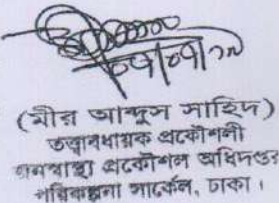 ০৭/০৭/১৯
(মীর আব্দুস সাহিদ)
তত্ত্বাবধায়ক প্রকৌশলী
জনস্বাস্থ্য প্রকৌশল অধিদপ্তর
পরিকল্পনা সার্কেল, ঢাকা।